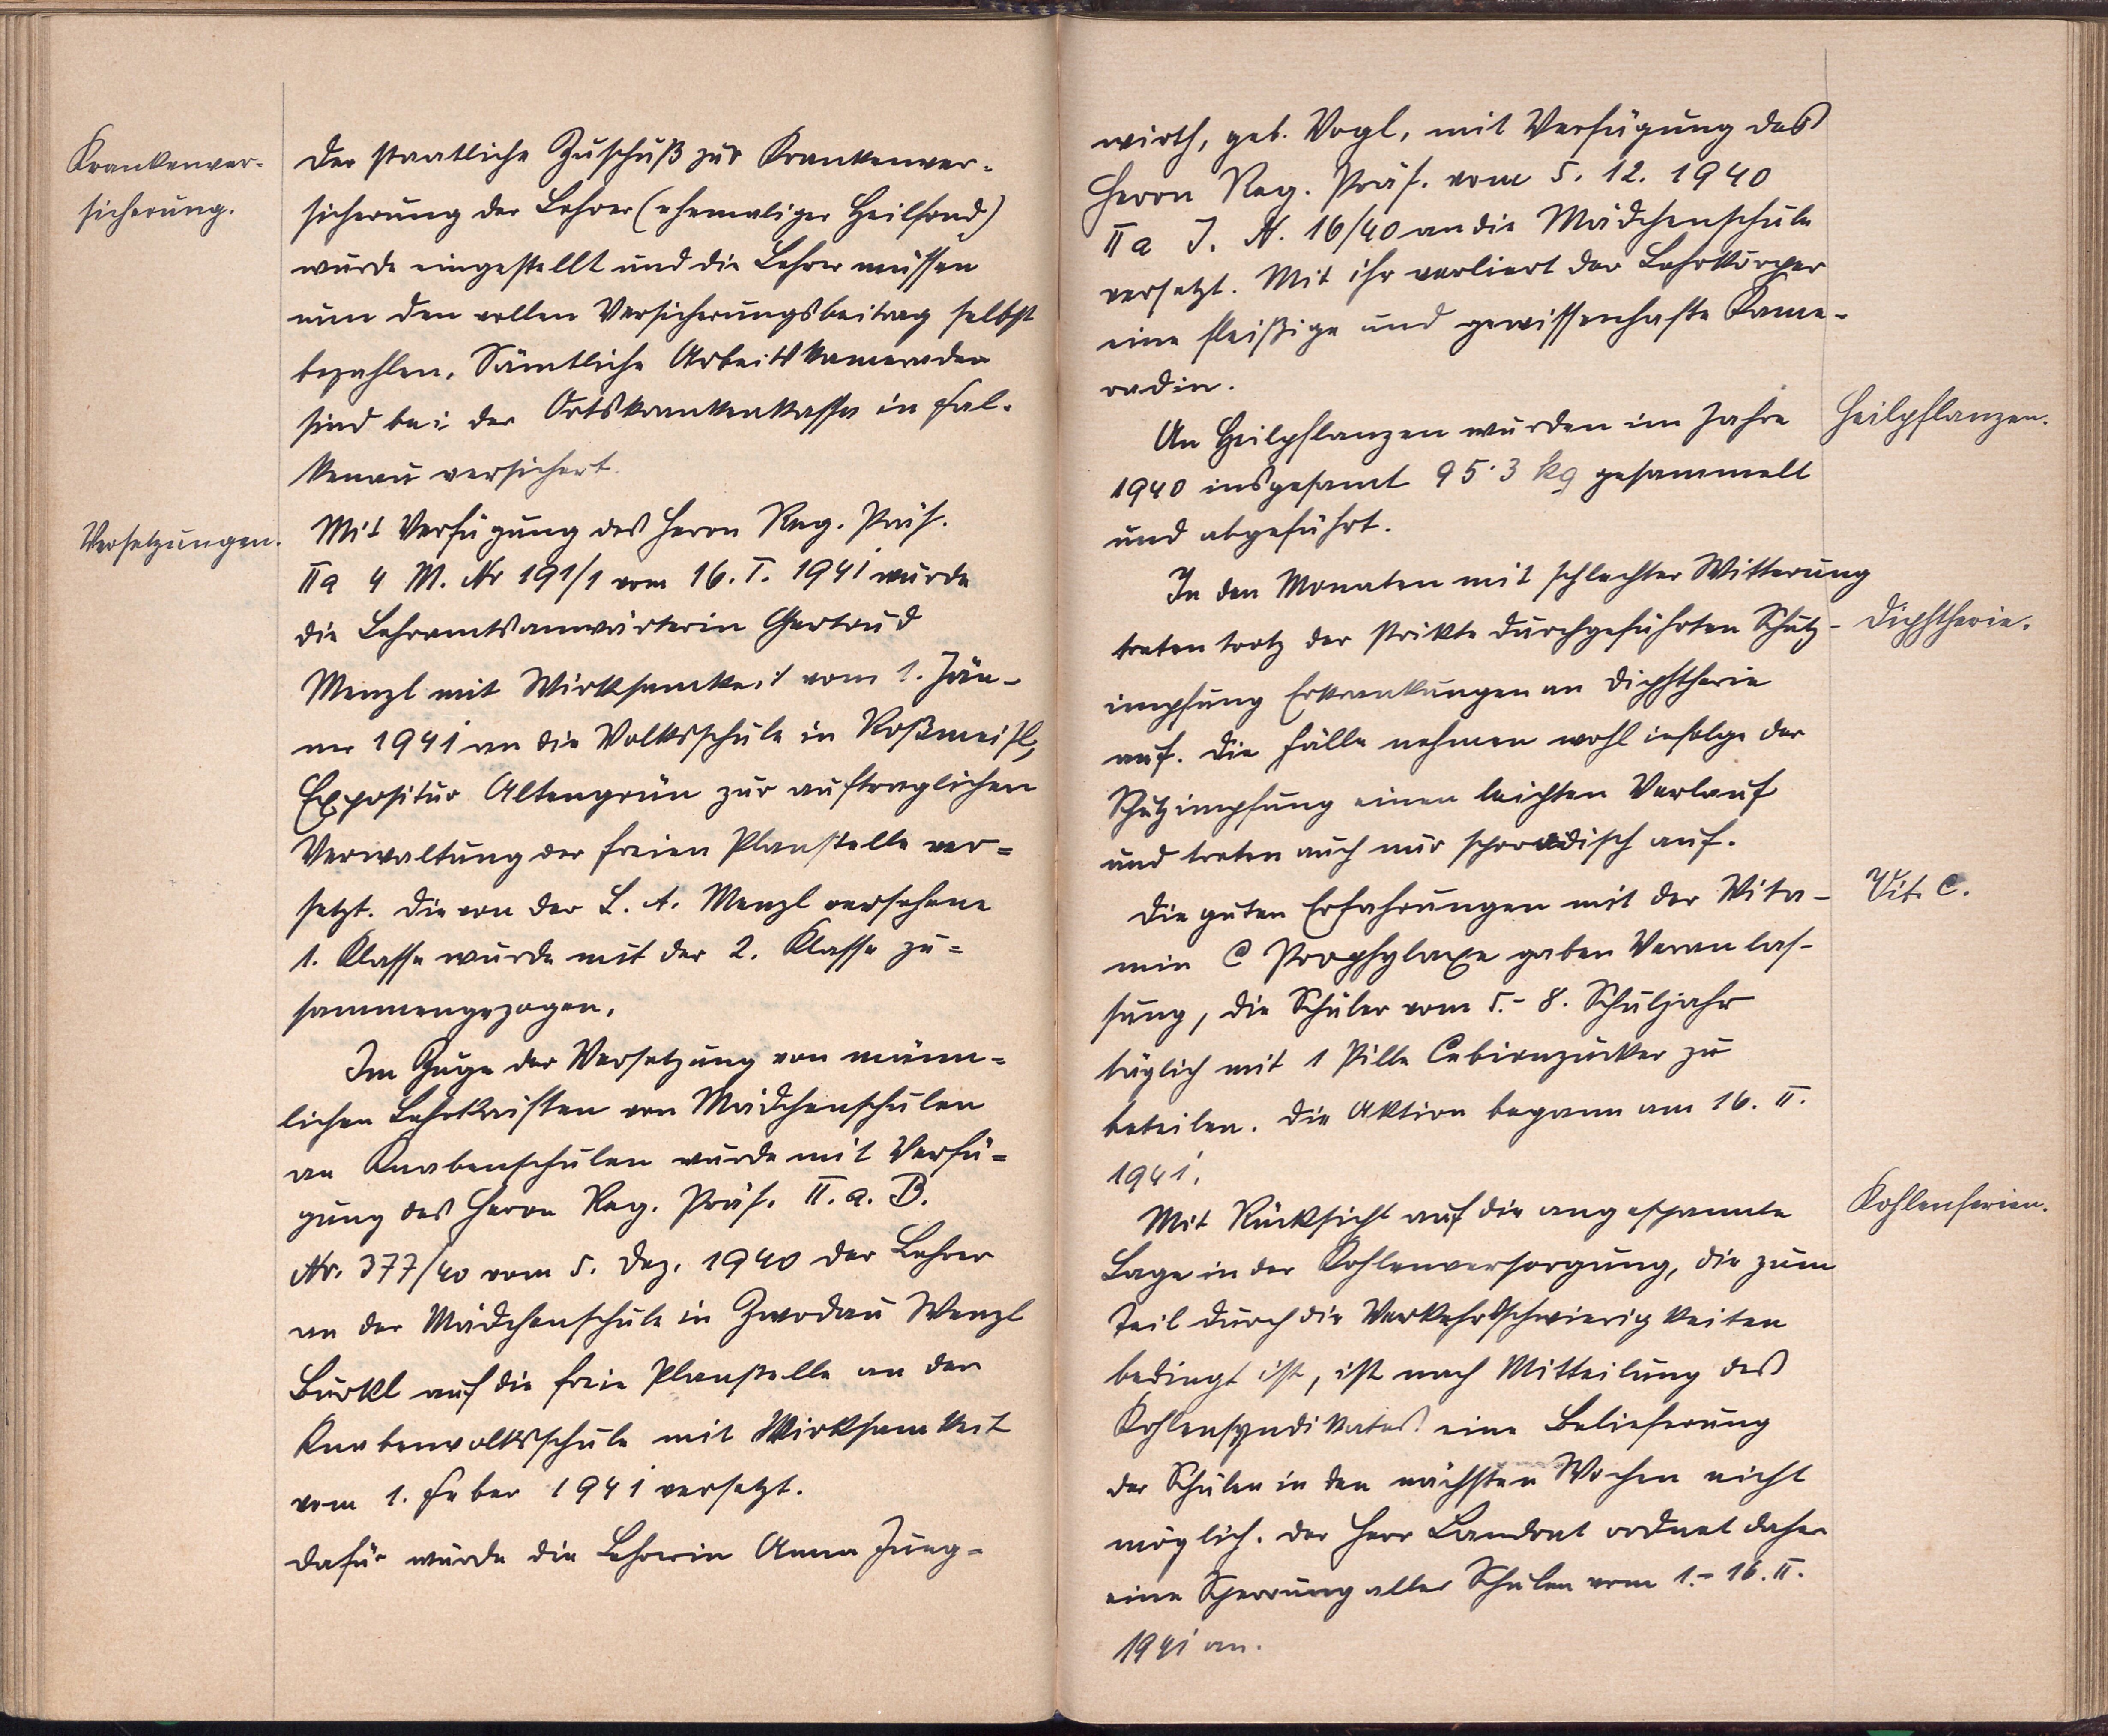 Krankenver-
sicherung.
Der staatliche Zuschuß zur Krankenver-
sicherung der Lehrer (ehemaliger Heilfond)
wurde eingestellt und die Lehrer müssen
nun den vollen Versicherungsbeitrag selbst
bezahlen. Sämtliche Arbeitskameraden
sind bei der Ortskrankenkasse in Fal-
kenau versichert.
Versetzungen.
Mit Verfügung des Herrn Reg. Präs.
IIa 4 M. Nr 191/1 vom 16. I. 1941 wurde
die Lehramtsanwärterin Gertrud
Menzl mit Wirksamkeit vom 1. Jän-
ner 1941 an die Volksschule in Roßmeisl,
Expositur Altengrün zur auftraglichen
Verwaltung der freien Planstelle ver=
setzt. Die von der L. A. Menzl versehene
1. Klasse wurde mit der 2. Klasse zu=
sammengezogen.
Im Zuge der Versetzung von männ=
lichen Lehrkräften von Mädchenschulen
an Knabenschulen wurde mit Verfü=
gung des Herrn Reg. Präs. II. a. B.
Nr. 377/40 vom 5. Dez. 1940 der Lehrer
an der Mädchenschule in Zwodau Wenzl
Bürkl auf die freie Planstelle an der
Knabenvolksschule mit Wirksamkeit
vom 1. Feber 1941 versetzt.
Dafür wurde die Lehrerin Anna Jung=
wirth, geb. Vogl, mit Verfügung des
Herrn Reg. Präs. vom 5. 12. 1940
IIa J. N. 16/40 an die Mädchenschule
versetzt. Mit ihr verliert der Lehrkörper
eine fleißige und gewissenhafte Kame-
radin.
Heilpflanzen.
An Heilpflanzen wurden im Jahre
1940 insgesamt 95·3 kg gesammelt
und abgeführt.
In den Monaten mit schlechter Witterung
Diphtherie.
traten trotz der strikte durchgeführten Schutz-
impfung Erkrankungen an Diphtherie
auf. Die Fälle nehmen wohl infolge der
Schutzimpfung einen leichten Verlauf
und treten auch nur sporadisch auf.
Vit. C.
Die guten Erfahrungen mit der Vita-
min C Prophylaxe gaben Veranlas-
sung, die Schüler vom 5.- 8. Schuljahr
täglich mit 1 Pille Cebionzucker zu
beteilen. Die Aktion begann am 16. II.
1941.
Kohlenferien.
Mit Rücksicht auf die angespannte
Lage in der Kohlenversorgung, die zum
Teil durch die Verkehrsschwierigkeiten
bedingt ist, ist nach Mitteilung des
Kohlensyndikates eine Belieferung
der Schulen in den nächsten Wochen nicht
möglich. Der Herr Landrat ordnet daher
eine Sperrung aller Schulen vom 1.- 16. II.
1941 an.